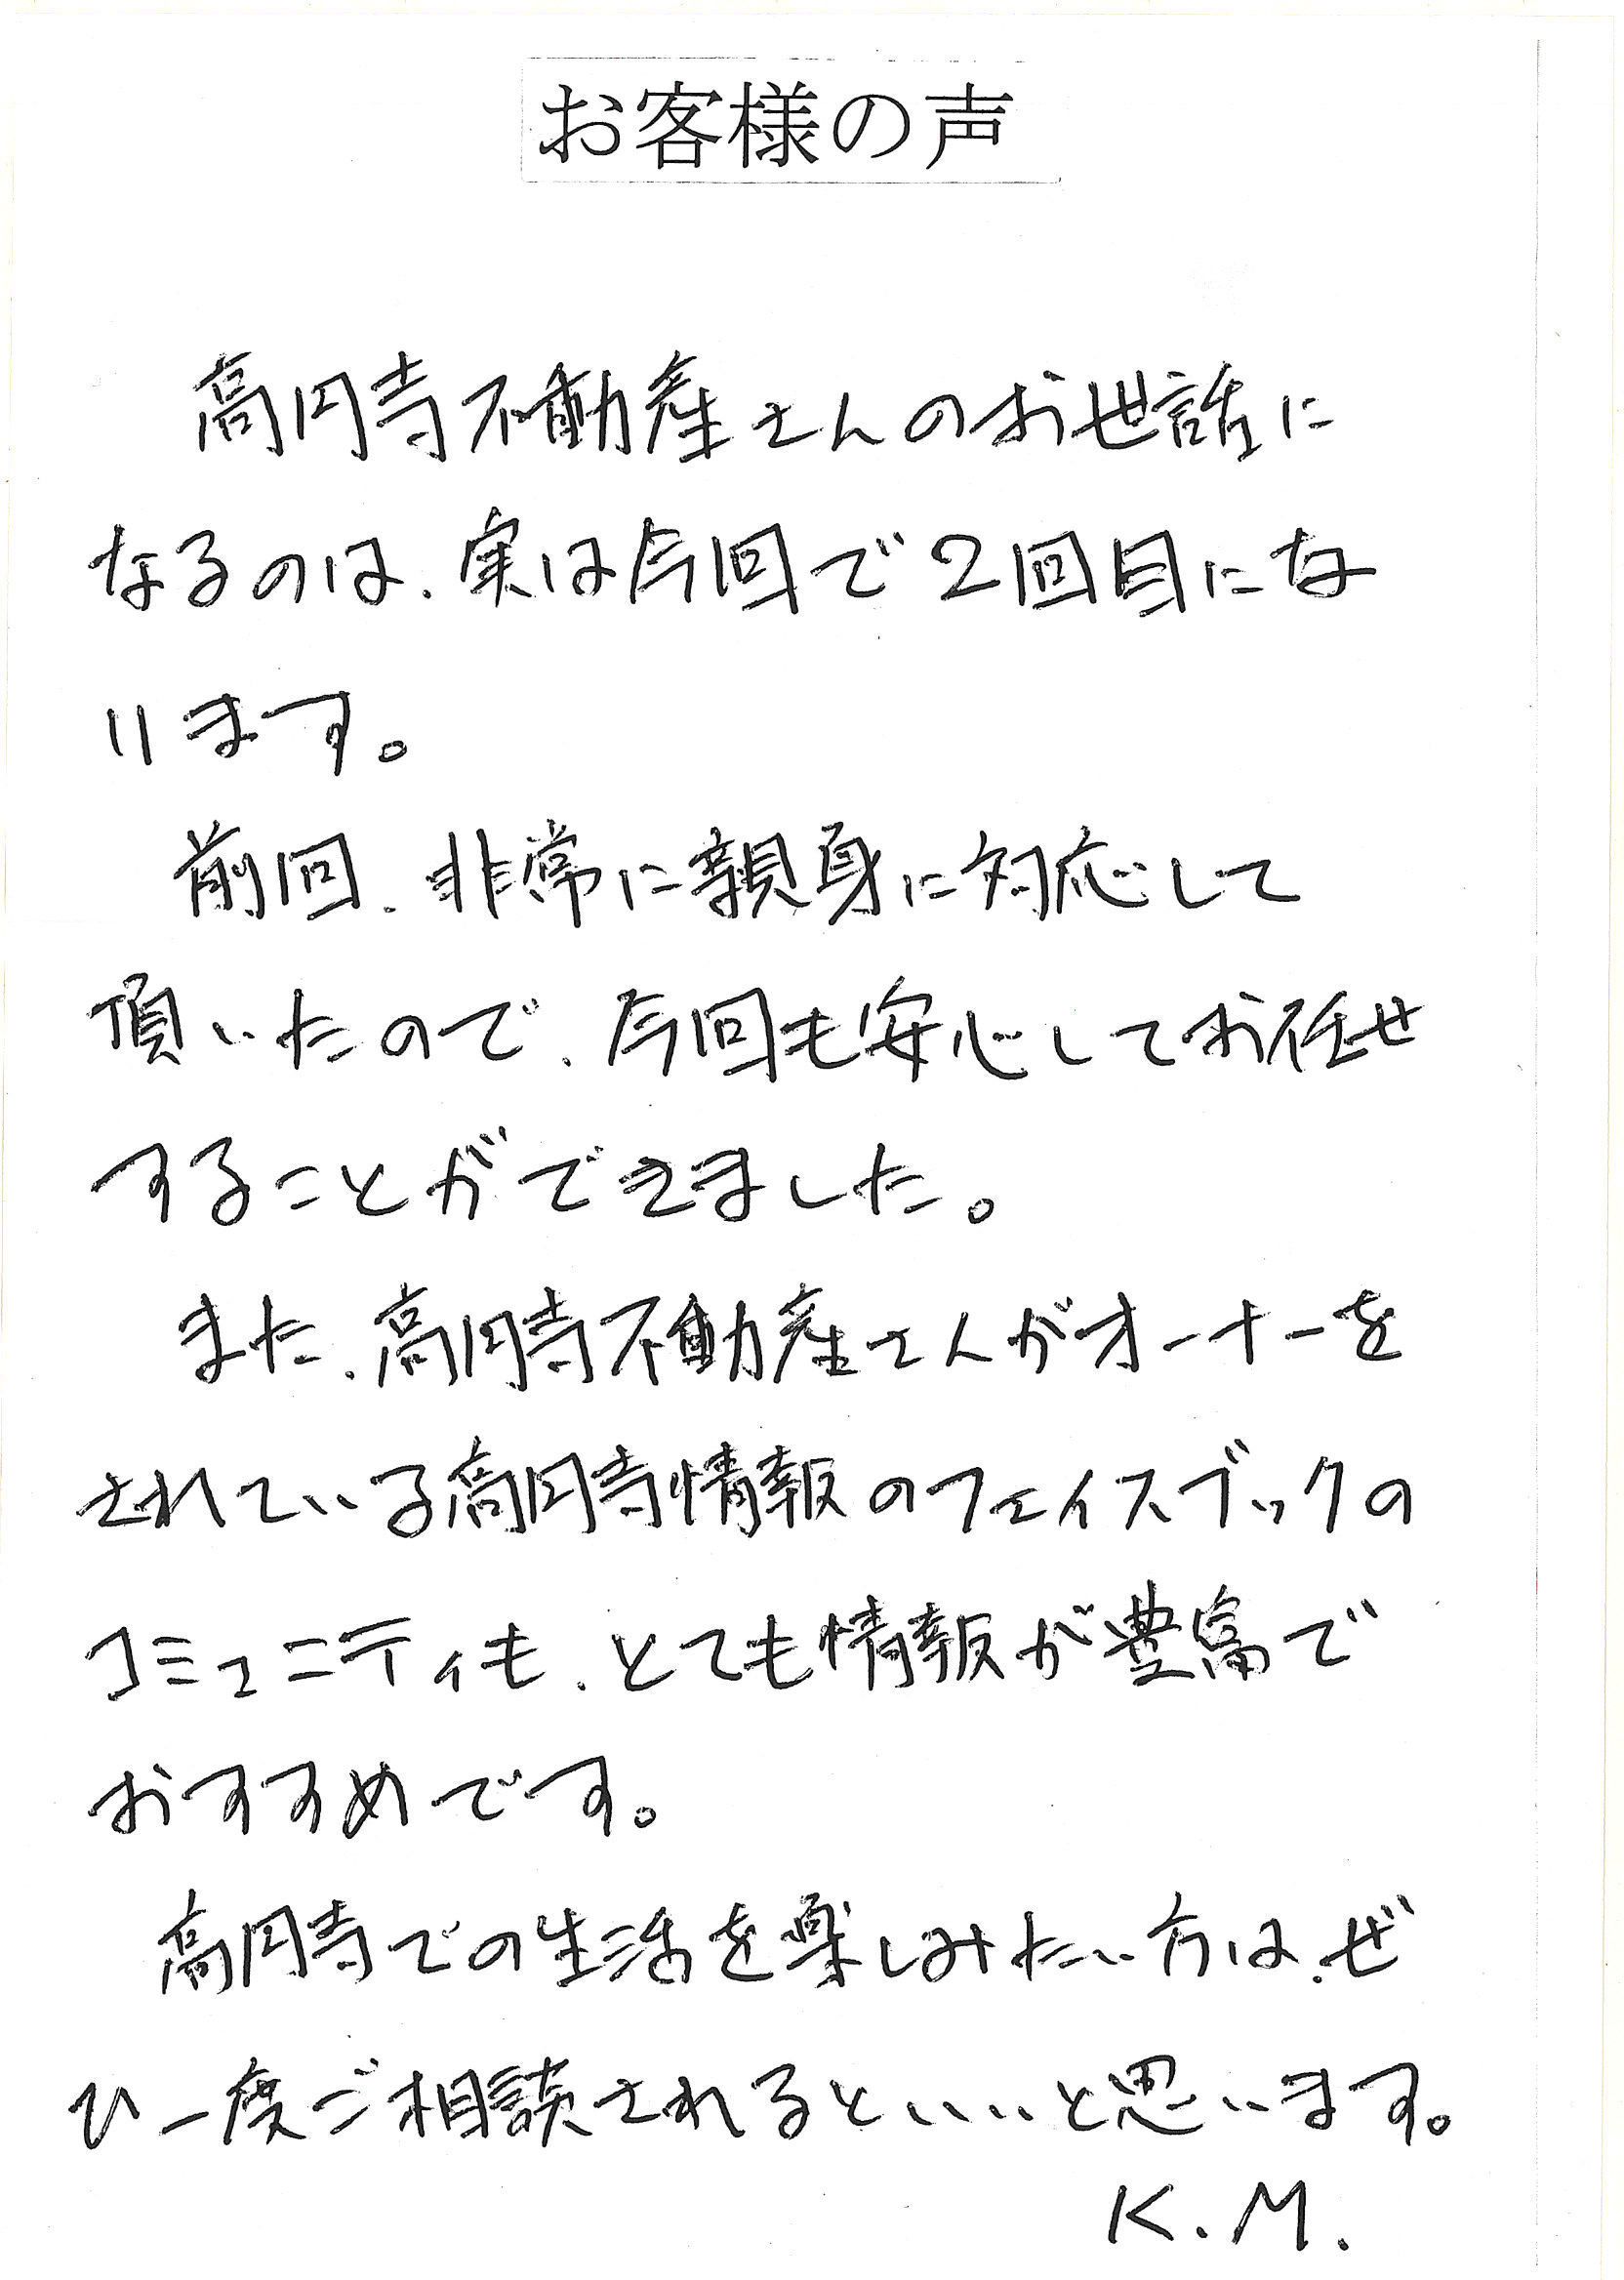 お客様の声
高円寺不動産さんのお世話に
なるのは、実は今回で2回目にな
ります。
前回、非常に親身に対応して
頂いたので、今回も安心してお任せ
することができました。
また、高円寺不動産さんがオーナーを
されている高円寺情報のフェイスブックの
コミュニティも、とても情報が豊富で
おすすめです。
高円寺での生活を楽しみたい方は、ぜ
ひ一度ご相談されるといいと思います。
K.M.